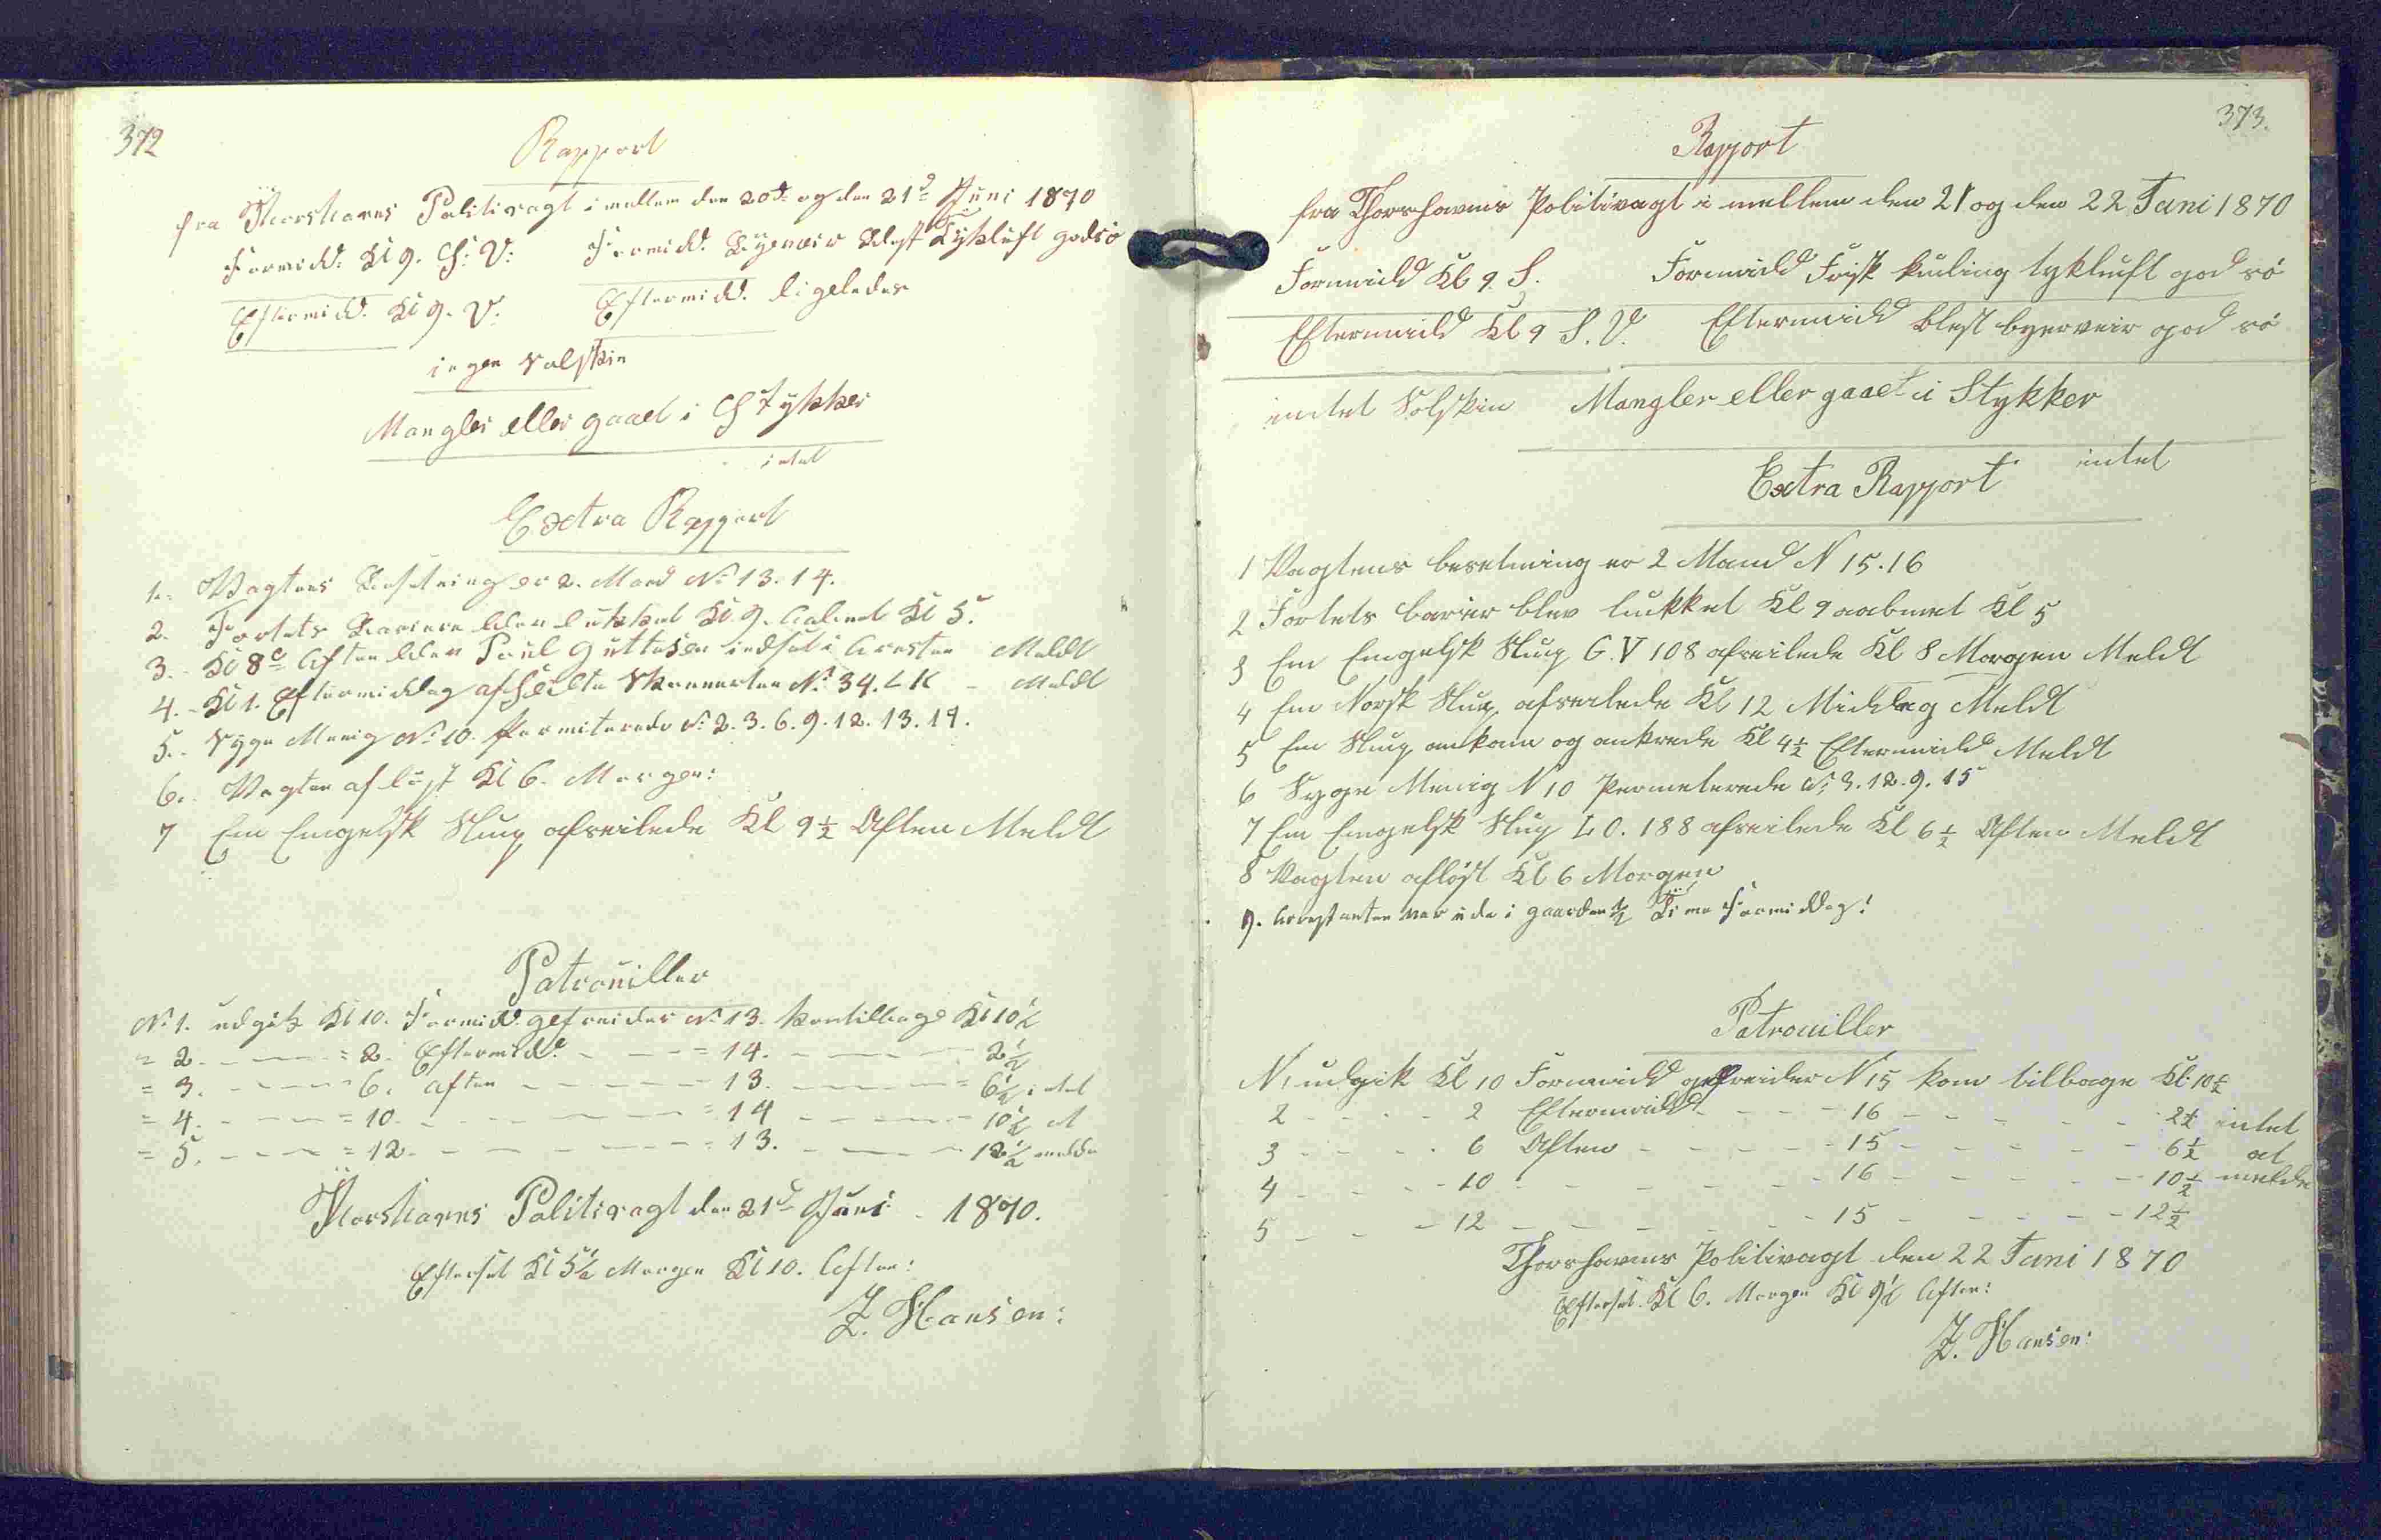 372
Rapport
fra Thorshavns Politivagt i mellem den 20de og den 21de Juni 1870
Formidd: Kl 9. S: V: Formidd. Byeveir Blæst Tykluft god sö
Eftermidd. Kl 9. V. Eftermidd. ligeledes
ingen Solskin
Mangler eller gaaet i Stykker
intet
Extra Rapport
1. Vagtens Besetning er 2. Mand No 13. 14.
2. Fortets Bariere blev lukket Kl 9. aabnet Kl 5.
3. Kl 8 Aften blev Poul Guttesen indsat i Aresten Meldt
4. Kl 1. Eftermiddag afseilte Skonnerten No 34. L K - Meldt
5. Syge Menig No 10. Permiterede No 2. 3. 6. 9. 12. 13. 14.
6. Vagten aflöst Kl 6. Morgen:
7 En Engelsk Slup afseilede Kl 9 1/2 Aften Meldt
Patrouiller
No 1. udgik Kl 10. Formidd. gefreider No 13. kom tilbage Kl 10 1/2
= 2. - - - = 2. Eftermidd. - - - = 14. - - - 2 1/2
= 3. - - - 6. aften - - - 13. - - - = 6 1/2 intet
= 4. - - - = 10. - - - = 14 - - - 10 1/2 at
= 5. - - - = 12. - - - = 13. - - - 12 1/2 melde
Thorshavns Politivagt den 21de Juni 1870.
Efterset Kl 5 1/2 Morgen Kl 10. Aften:
Z. Hansen:
373.
Rapport
fra Thorshavns Politivagt i mellem den 21 og den 22 Juni 1870
Formidd Kl 9 S. Formidd Frisk kuling tykluft god sö
Eftermidd Kl 9 S. V. Eftermidd blest byerveir god sö
intet Solskin Mangler eller gaaet i Stykker
intet
Extra Rapport
1 Vagtens besetning er 2 Mand N 15. 16
2 Fortets barier blev lukket Kl 9 aabnet Kl 5
3 En Engelsk Slup G. V 108 afseilede Kl 8 Morgen Meldt
4 En Norsk Slup afseilede Kl 12 Middag Meldt
5 En Slup ankom og ankrede Kl 4 1/2 Eftermidd Meldt
6 Syge Menig N 10 Permeterede N. 3. 12. 9. 15
7 En Engelsk Slup L O. 188 afseilede Kl 6 1/2 Aften Meldt
8 Vagten aflöst Kl 6 Morgen
9. Arestanten var ude i gaarden 1/2 Time Formiddag!
Patrouiller
N 1 udgik Kl 10 Formidd gefreider N 15 kom tilbage Kl. 10 1/2
2 - - - 2 Eftermidd - - - 16 - - - 2 1/2 intet
3 - - - 6 Aften - - - 15 - - - 6 1/2 at
4 - - - 10 - - - 16 - - - 10 1/2 melde
5 - - - 12 - - - 15 - - - 12 1/2
Thorshavns Politivagt den 22 Juni 1870
Efterset Kl 6. Morgen Kl 9 1/2 Aften:
Z. Hansen: